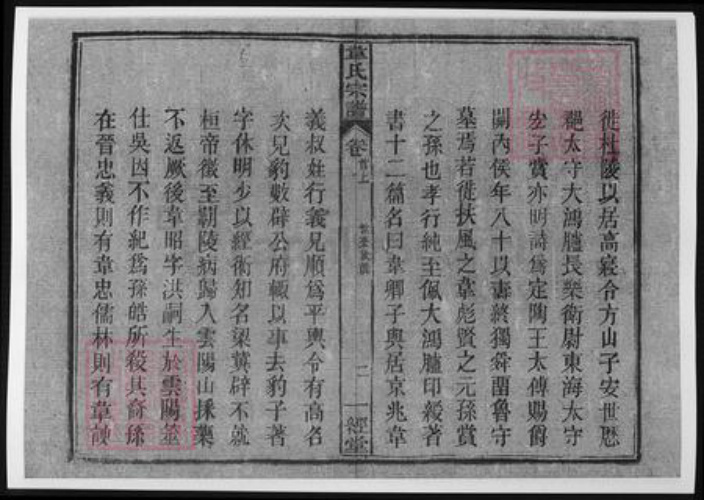 徙杜陵以居高寢令方山子安世歷
魏太守大鴻臚長樂衛尉東海太守
宏子賞亦明詩爲定陶王太傅賜爵
關內侯年八十以壽終獨舜留魯守
墓焉若徙扶風之韋彪賢之元孫賞
之孫也孝行純至佩大鴻臚印綬著
書十二篇名曰韋卿子與居京兆韋
韋氏宗譜
卷首上
二
一經堂
義叔姓行義見順爲平輿令有高名
次兄豹數辟公府輒以事去豹子著
字休明少以經術知名梁冀辟不就
桓帝徵至霸陵病歸入雲陽山採藥
不返厥後韋昭字洪嗣生於雲陽並
仕吳因不作紀爲孫皓所殺其裔孫
在晉忠義則有韋忠儒林則有韋謏